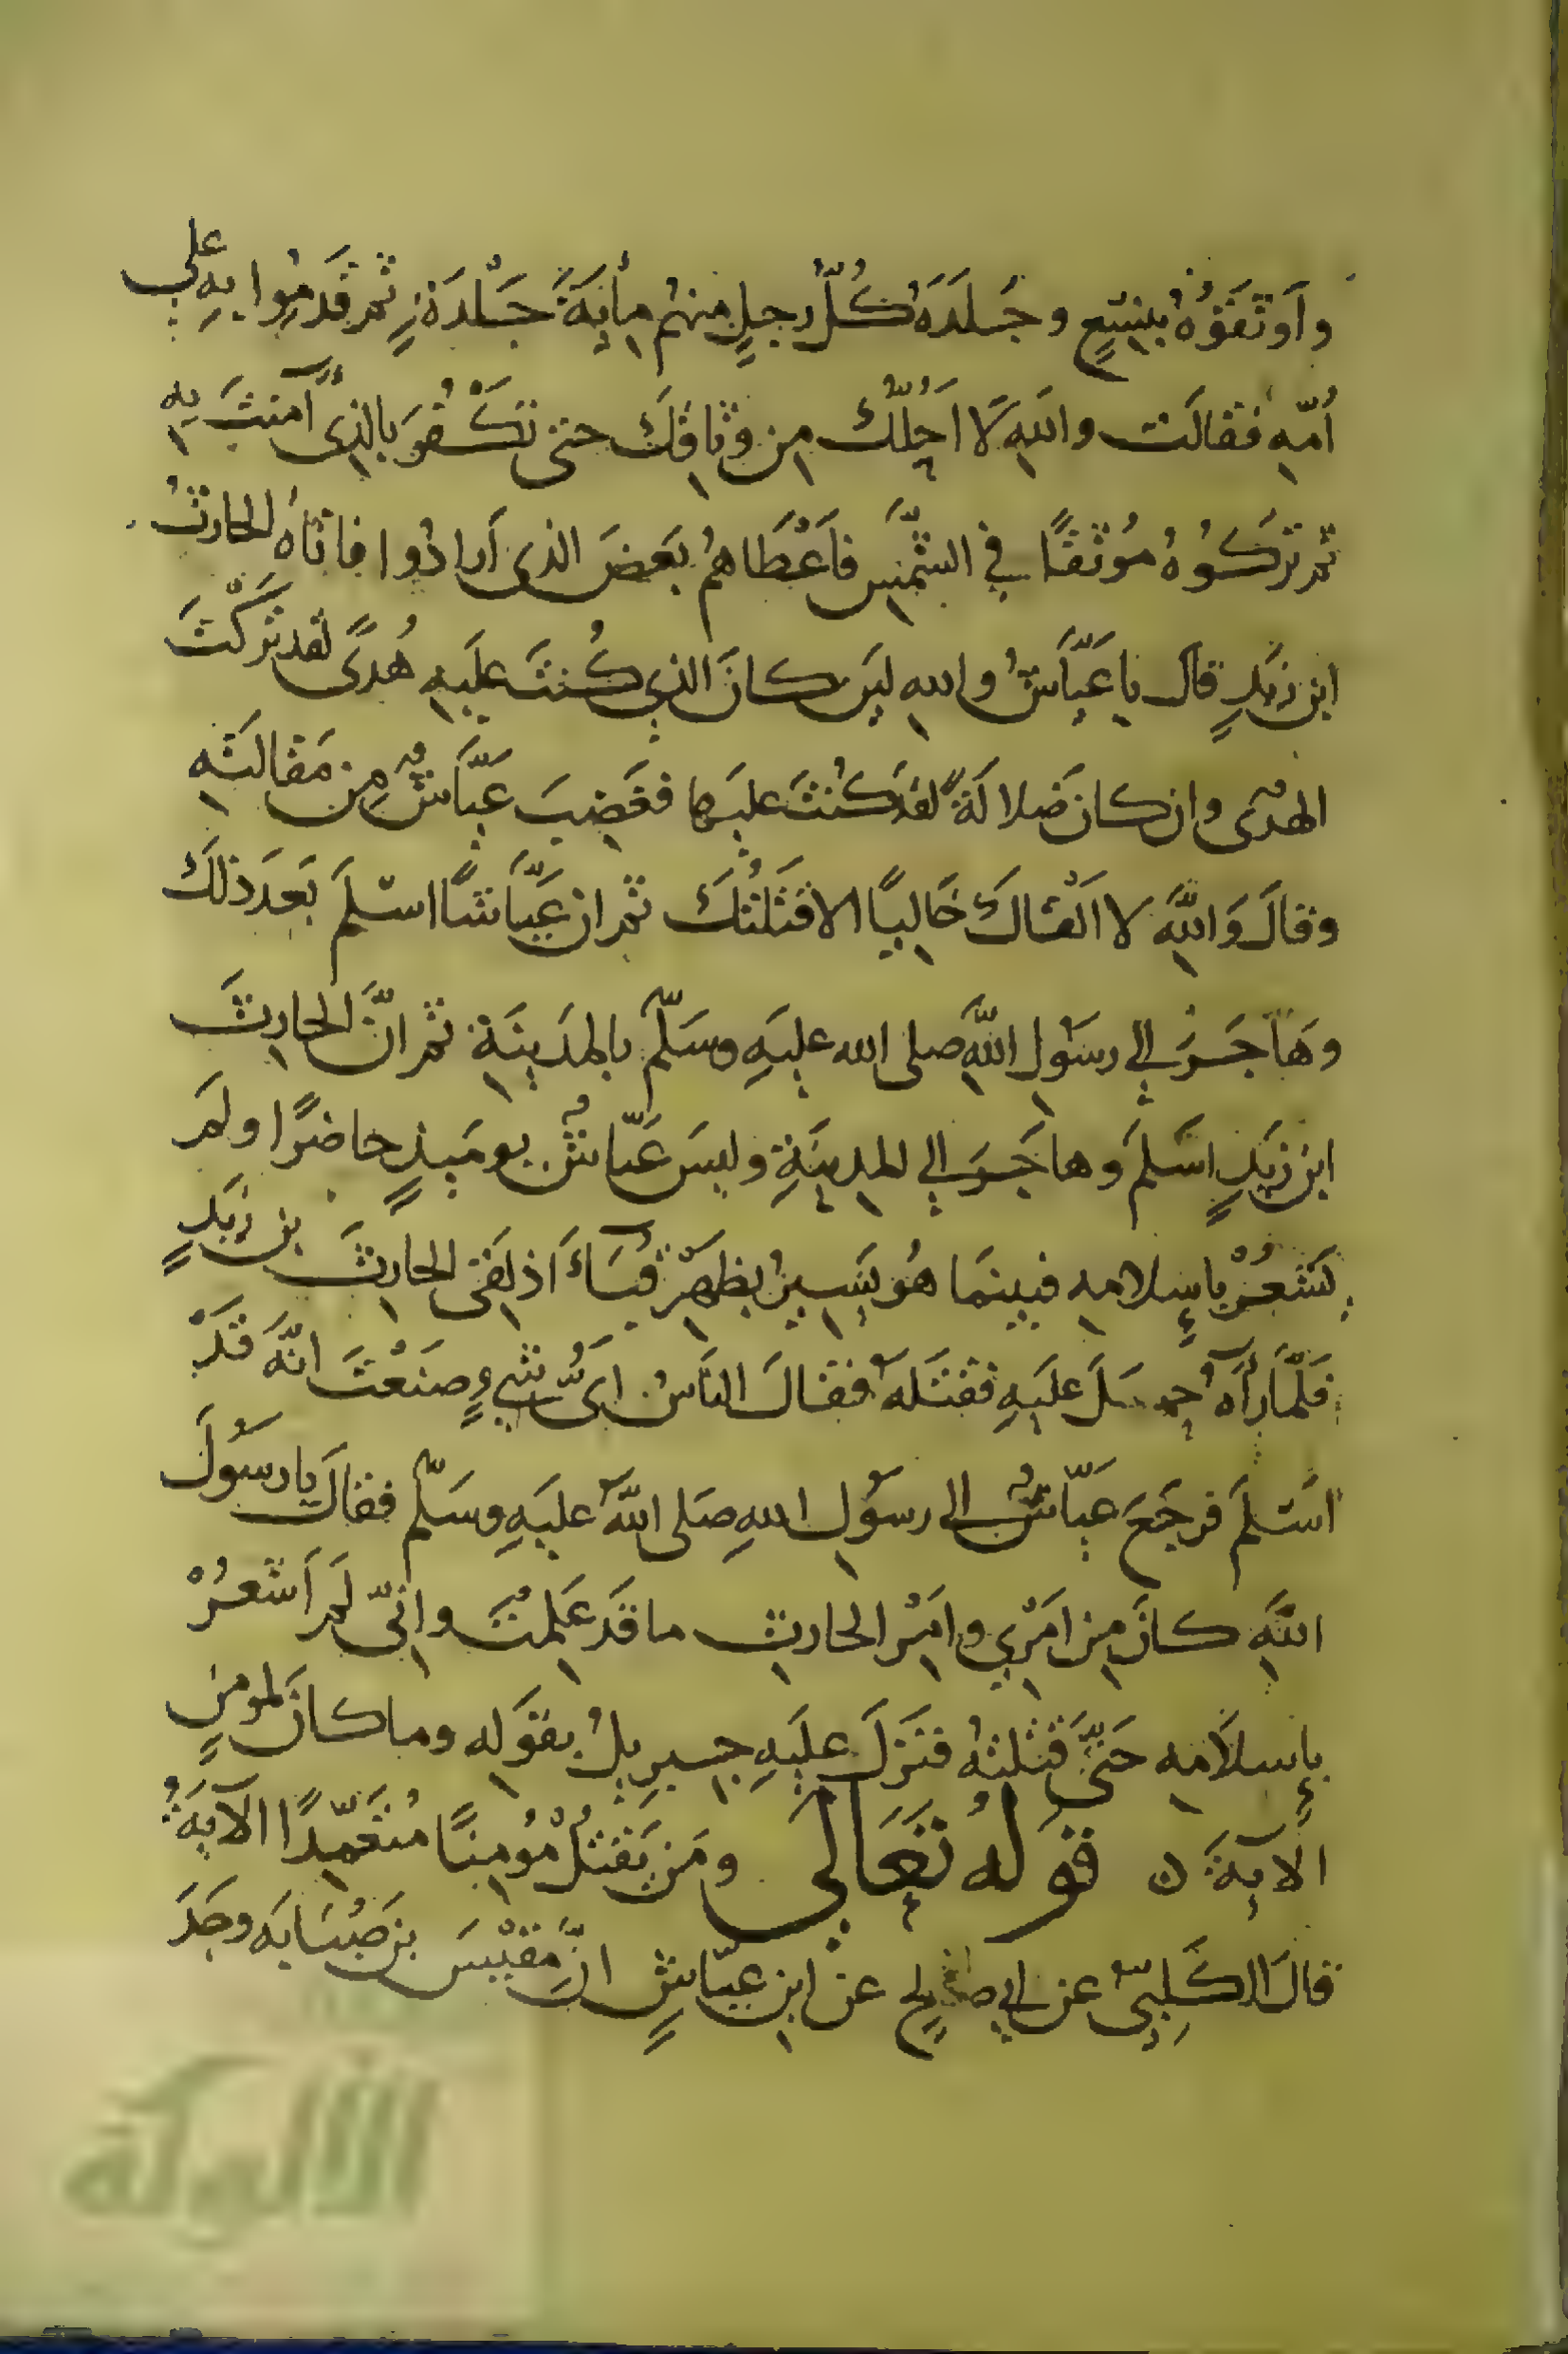 وَأَوْثَقُوهُ بِنِسْعٍ وَجَلَدَهُ كُلُّ رجلٍ منهُم مِأيَةَ جَلْدَةٍ ثم قَدِمُوا بِهِ على
أُمِّهِ فقالَت واللهِ لَا اُحِلُّكَ مِن وِثاقِكَ حتى تَكْفُرَ بالذى آمنتَ بِهِ
ثم تَرَكُوهُ مُوثَقًا في الشَّمسِ فاَعْطَاهُم بَعضَ الذى اَرادُوا فاتاهُ الحارثُ
ابن زيدٍ قال يا عَيَّاشُ واللهِ لين كانَ الذي كُنتَ عليهِ هُدىً لقد تَركْتَ
الهدى وان كانَ ضلالَةً لقد كُنتَ عليها فغَضِبَ عَيَّاشٌ مِن مَقالتِهِ
وقالَ وَاللهِ لا اَلْقاكَ خَالِيًا الا قَتَلْتُكَ ثم ان عَيَّاشًا اسْلَمَ بَعدَ ذلكَ
وهَاجَرَ إلي رسُولِ اللهِ صلى الله عليهِ وسَلَّم بالمدَينَةِ ثم انَّ الحارِثَ
ابن زيدٍ اسلَمَ وهاجَرَ الي المدينَةِ وليسَ عَيَّاشٌ يوميذٍ حاضرًا ولم
يَشْعُرْ بإسلامِهِ فبينَمَا هُو يَسِيرُ بظَهرِ قُبَاءَ اذ لَقى الحارِثَ بن زيدٍ
فلَمَّا رَآهُ حمَلَ عليَهِ فقتَلَهُ فقالَ النَّاسُ اىُّ شيءٍ صنَعْتَ انَّهُ قَدْ
اسْلمَ فرجَعَ عيّاشٌ الى رسُولِ اللهِ صَلى اللهُ عليَهِ وسَلَّم فقالَ يا رسُولَ
اللهِ كانَ مِن امْرِي وامْرِ الحارِثِ ما قَد عَلِمتَ وانّى لَم اَشْعُرْ
بإسلَامِهِ حَتَّى قتلتهُ فنَزَلَ عليَهِ جبريلُ بقَولِهِ وما كانَ لمومنٍ
الآيةَ ن قوله تَعَالَى ومَن يَقتُلْ مُومِنًا مُتَعَمِّدًا الآيَةُ
قالَ الكَلبِىُّ عن ابي صالحٍ عن ابنِ عبّاسٍ انَّ مِقْيَسَ بن صُبَابَه وجَدَ
الألوكة